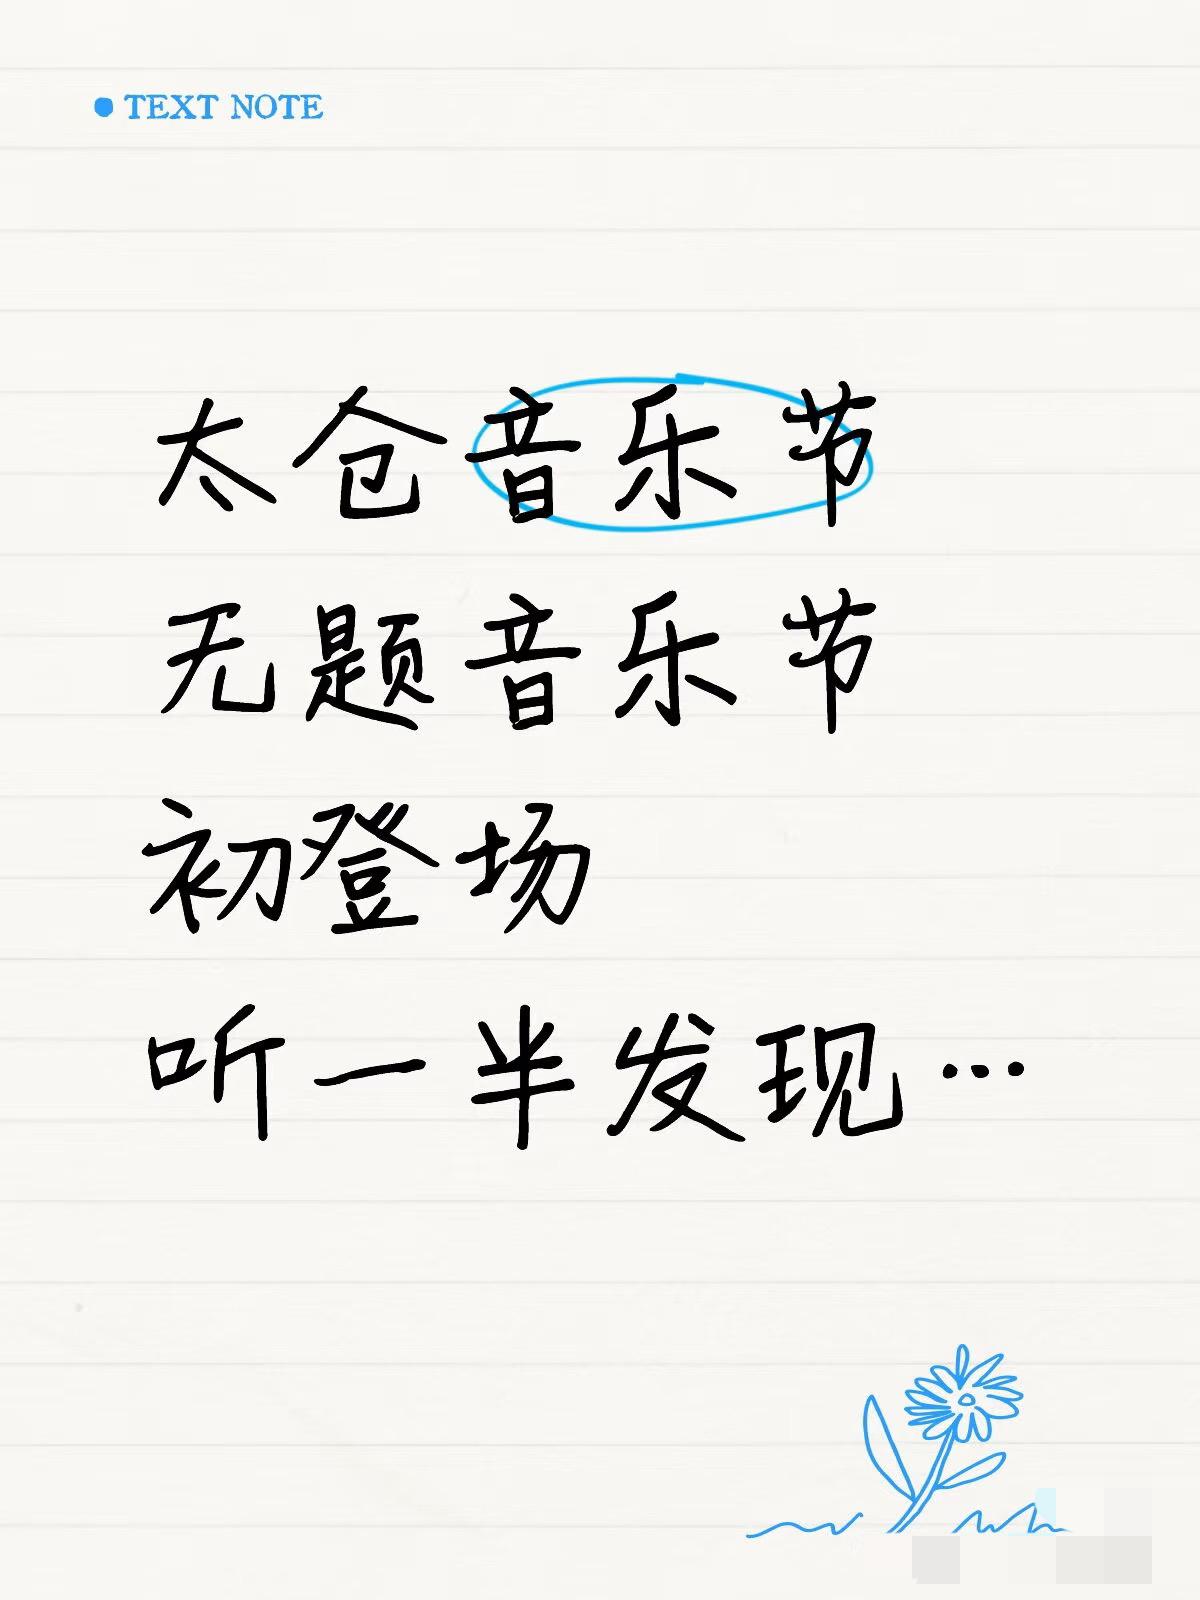 TEXT NOTE
太仓音乐节
无题音乐节
初登场
听一半发现…